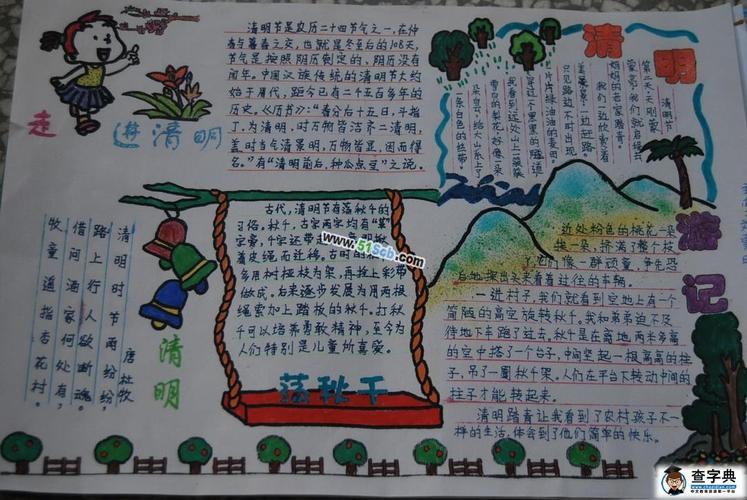 走进清明
清明节是农历二十四节气之一,在仲
春与暮春之交,也就是冬至后的108天。
节气是按照阳历制定的,阴历没有
闰年。中国汉族传统的清明节大约
始于周代,距今已有二千五百多年的
历史。《历书》:"春分后十五日,斗指
丁,为清明,时万物皆洁齐二清明,
盖时当气清景明,万物皆显,因而得
名。"有"清明前后,种瓜点豆"之说。
清明
游记
清明节
第二天,天刚蒙
蒙亮,我们就启程去
妈妈的老家踏青。
我们一边欣赏着
美景,一边赶路。
只见路边不时出现
一片片绿油油的麦田。
穿过一个黑黑的隧道
我看到远处山上一簇簇
雪白的梨花,好像一朵
朵白云,给大山系上了
一条白色的丝带
近处粉色的桃花一朵
挨一朵,挤满了整个枝
它们像一群顽童,争先恐
后地探出头来看着过往的车辆。
一进村子,我们就看到空地上有一个
简陋的高空旋转秋千。我和弟弟迫不及
待地下车跑了过去。秋千是在离地两米多高
的空中搭了一个台子,中间竖起一根高高的柱
子,吊了一圈秋千架。人们在平台下转动中间的
柱子才能转起来。
清明踏青让我看到了农村孩子不一
样的生活,体会到了他们简单的快乐。
古代,清明节有荡秋千的
习俗。秋千,古字两字均有"革"
字旁,千字还带走
着皮绳而迁移。古时的
多用树桠枝为架,再拴上彩带
做成。后来逐步发展为用两根
绳索加上踏板的秋千。打秋
千可以培养勇敢精神,至今为
人们特别是儿童所喜爱。
荡秋千
清明
唐 杜牧
清明时节雨纷纷,
路上行人欲断魂。
借问酒家何处有,
牧童遥指杏花村。
www.51Scb.com
查字典